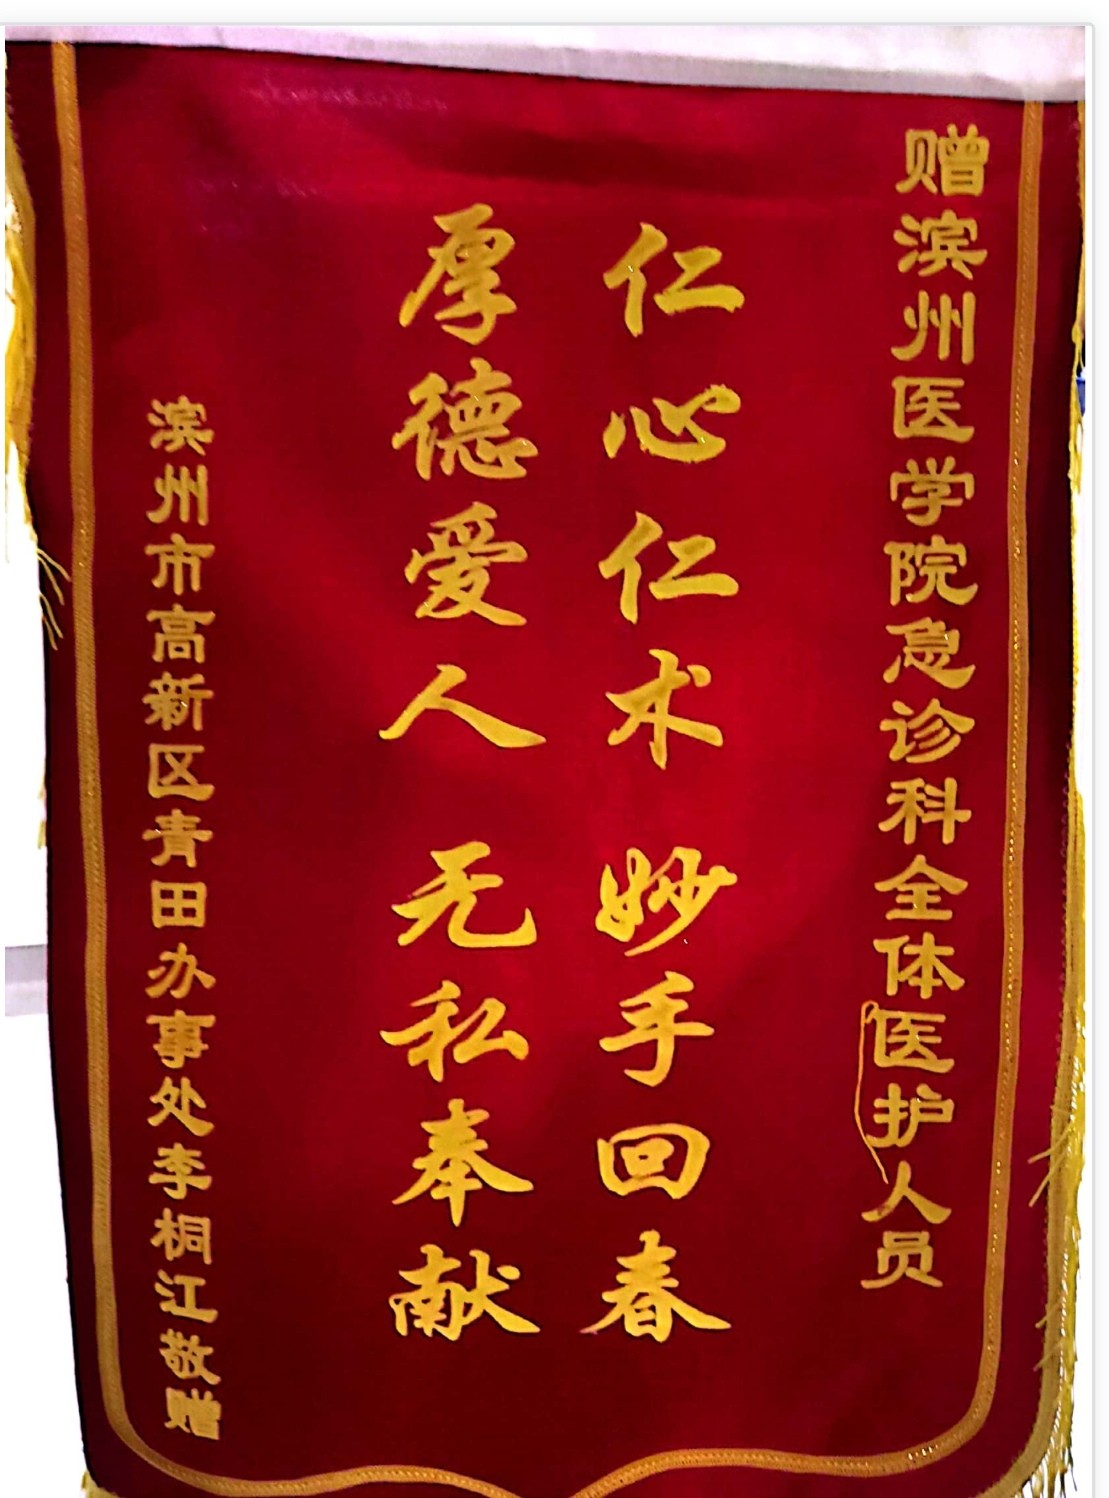 赠滨州医学院急诊科全体医护人员
仁心仁术 妙手回春
厚德爱人 无私奉献
滨州市高新区青田办事处李桐江敬赠